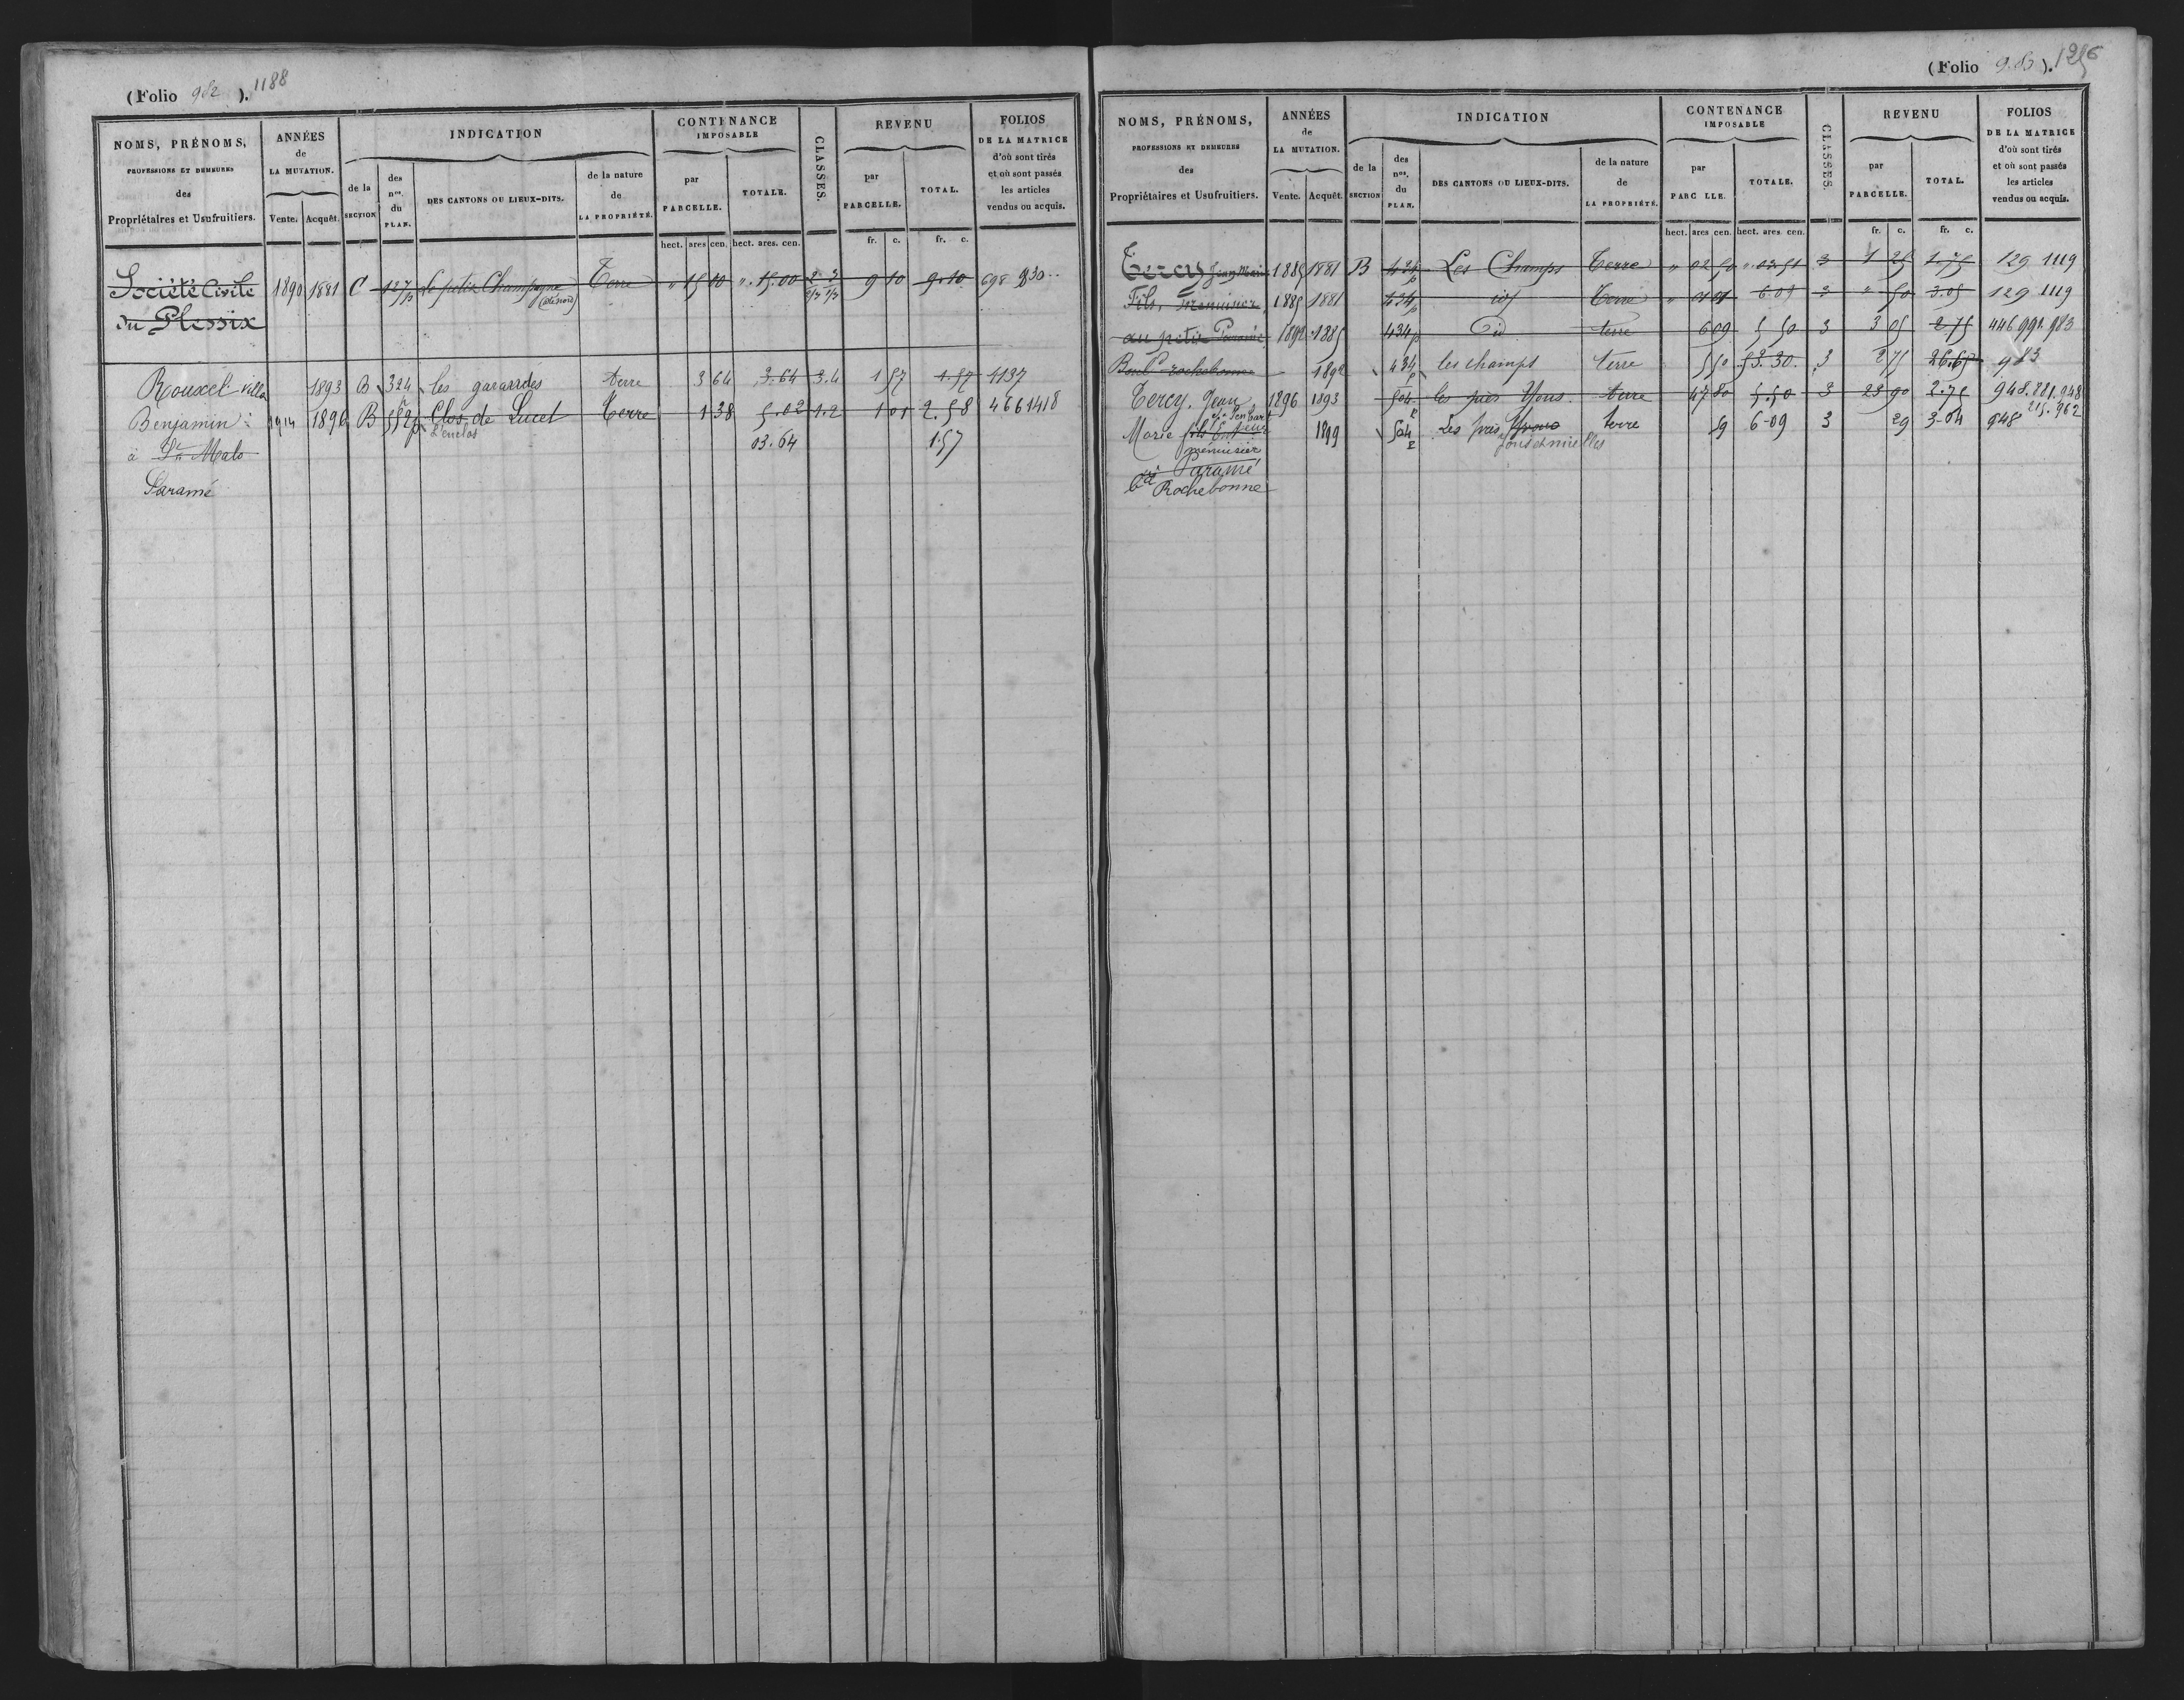 (Folio 982 ). 1188
NOMS, PRÉNOMS, PROFESSIONS ET DEMEURES des Propriétaires et Usufruitiers.
ANNÉES de LA MUTATION. Vente. Acquêt.
INDICATION
de la SECTION
des nos. du PLAN.
DES CANTONS OU LIEUX-DITS.
de la nature de LA PROPRIÉTÉ.
CONTENANCE IMPOSABLE
par PARCELLE. TOTALE.
hect. ares cen. hect. ares. cen.
CLASSES.
REVENU
par PARCELLE. TOTAL.
fr. c. fr. c.
FOLIOS DE LA MATRICE d'où sont tirés et où sont passés les articles vendus ou acquis.
Société Civile 1890 1881 C 127p Le petit Champagne (du nord) Terre " 15 00 ". 15. 00 2 3 9 10 9. 10 698 830
du Plessix
Rouxel villa 1893 B 324 les garardes terre 3 64 3.64 3.4 1 57 1.57 1137
Benjamin 1914 1896 B 582p Clos de Lucet Terre 1 38 5.02 1.2 1 01 2.58 466 1418
L'enclos
à St Malo 03.64 1.57
Paramé
(Folio 983 ). 1256
NOMS, PRÉNOMS, PROFESSIONS ET DEMEURES des Propriétaires et Usufruitiers.
ANNÉES de LA MUTATION. Vente. Acquêt.
INDICATION
de la SECTION
des nos. du PLAN.
DES CANTONS OU LIEUX-DITS.
de la nature de LA PROPRIÉTÉ.
CONTENANCE IMPOSABLE
par PARC LLE. TOTALE.
hect. ares cen. hect. ares cen.
CLASSES.
REVENU
par PARCELLE. TOTAL.
fr. c. fr. c.
FOLIOS DE LA MATRICE d'où sont tirés et où sont passés les articles vendus ou acquis.
Tercy Jean Marie 1885 1881 B 425p Les Champs Terre " 02 50 3 1 25 1.75 129 1119
Fils, menuisier, 1885 1881 434p id Terre " 01 01 6.09 3 " 50 3.05 129 1119
au petit Paramé 1892 1885 434p Id terre 6 09 5 50 3 3 05 2.75 446 991. 983
Boul.d rochebonne 1892 434p les champs terre 5 50 53.30. 3 2 75 26.65 983
Tercy, Jean 1896 1893 504p les près Yous. terre 47 80 5.50 3 23 90 2.75 948. 881. 948
215. 962
Marie fils Entr 1899 504p Les près terre 59 6-09 3 29 3-04 948
menuisier
à Paramé
Bd Rochebonne